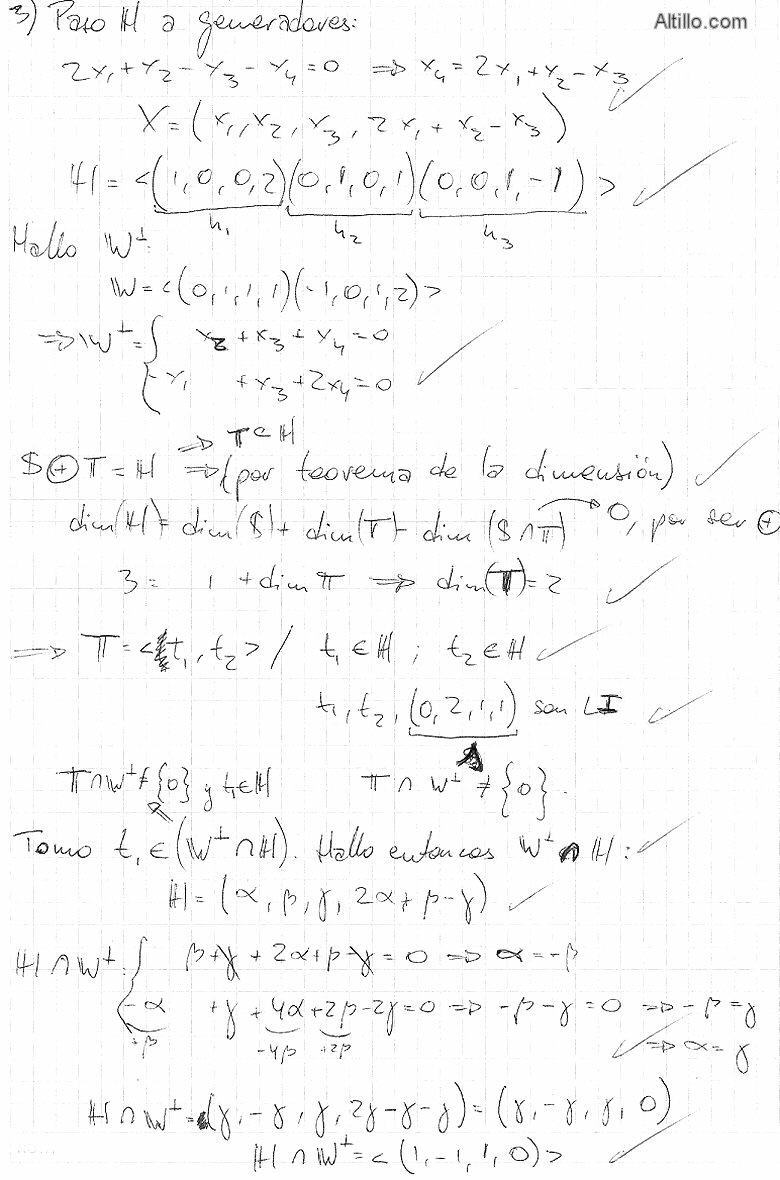 Altillo.com
3) Paso ℍ a generadores:
2x₁+x₂-x₃-x₄=0 ⇒ x₄=2x₁+x₂-x₃
X=(x₁,x₂,x₃,2x₁+x₂-x₃)
ℍ=<(1,0,0,2)(0,1,0,1)(0,0,1,-1)>
h₁ h₂ h₃
Hallo 𝕎⊥:
𝕎=<(0,1,1,1)(-1,0,1,2)>
⇒𝕎⊥={ x₂+x₃+x₄=0
-x₁ +x₃+2x₄=0
⇒ 𝕋⊂ℍ
$⊕𝕋=ℍ ⇒(por teorema de la dimensión)
dim(ℍ)=dim($)+dim(𝕋)-dim($∩𝕋) → 0, por ser ⊕
3= 1 +dim 𝕋 ⇒ dim(𝕋)=2
⇒ 𝕋=<t₁,t₂> / t₁∈ℍ; t₂∈ℍ
t₁,t₂,(0,2,1,1) son LI
𝕋∩𝕎⊥≠{0} y t₁∈ℍ 𝕋∩𝕎⊥≠{0}.
Tomo t₁∈(𝕎⊥∩ℍ). Hallo entonces 𝕎⊥∩ℍ:
ℍ=(α,β,γ,2α+β-γ)
ℍ∩𝕎⊥:{ β+γ+2α+β-γ=0 ⇒ α=-β
-α +γ+4α+2β-2γ=0 ⇒ -β-γ=0 ⇒ -β=γ
+β -4β +2β ⇒ α=γ
ℍ∩𝕎⊥=(γ,-γ,γ,2γ-γ-γ)=(γ,-γ,γ,0)
ℍ∩𝕎⊥=<(1,-1,1,0)>